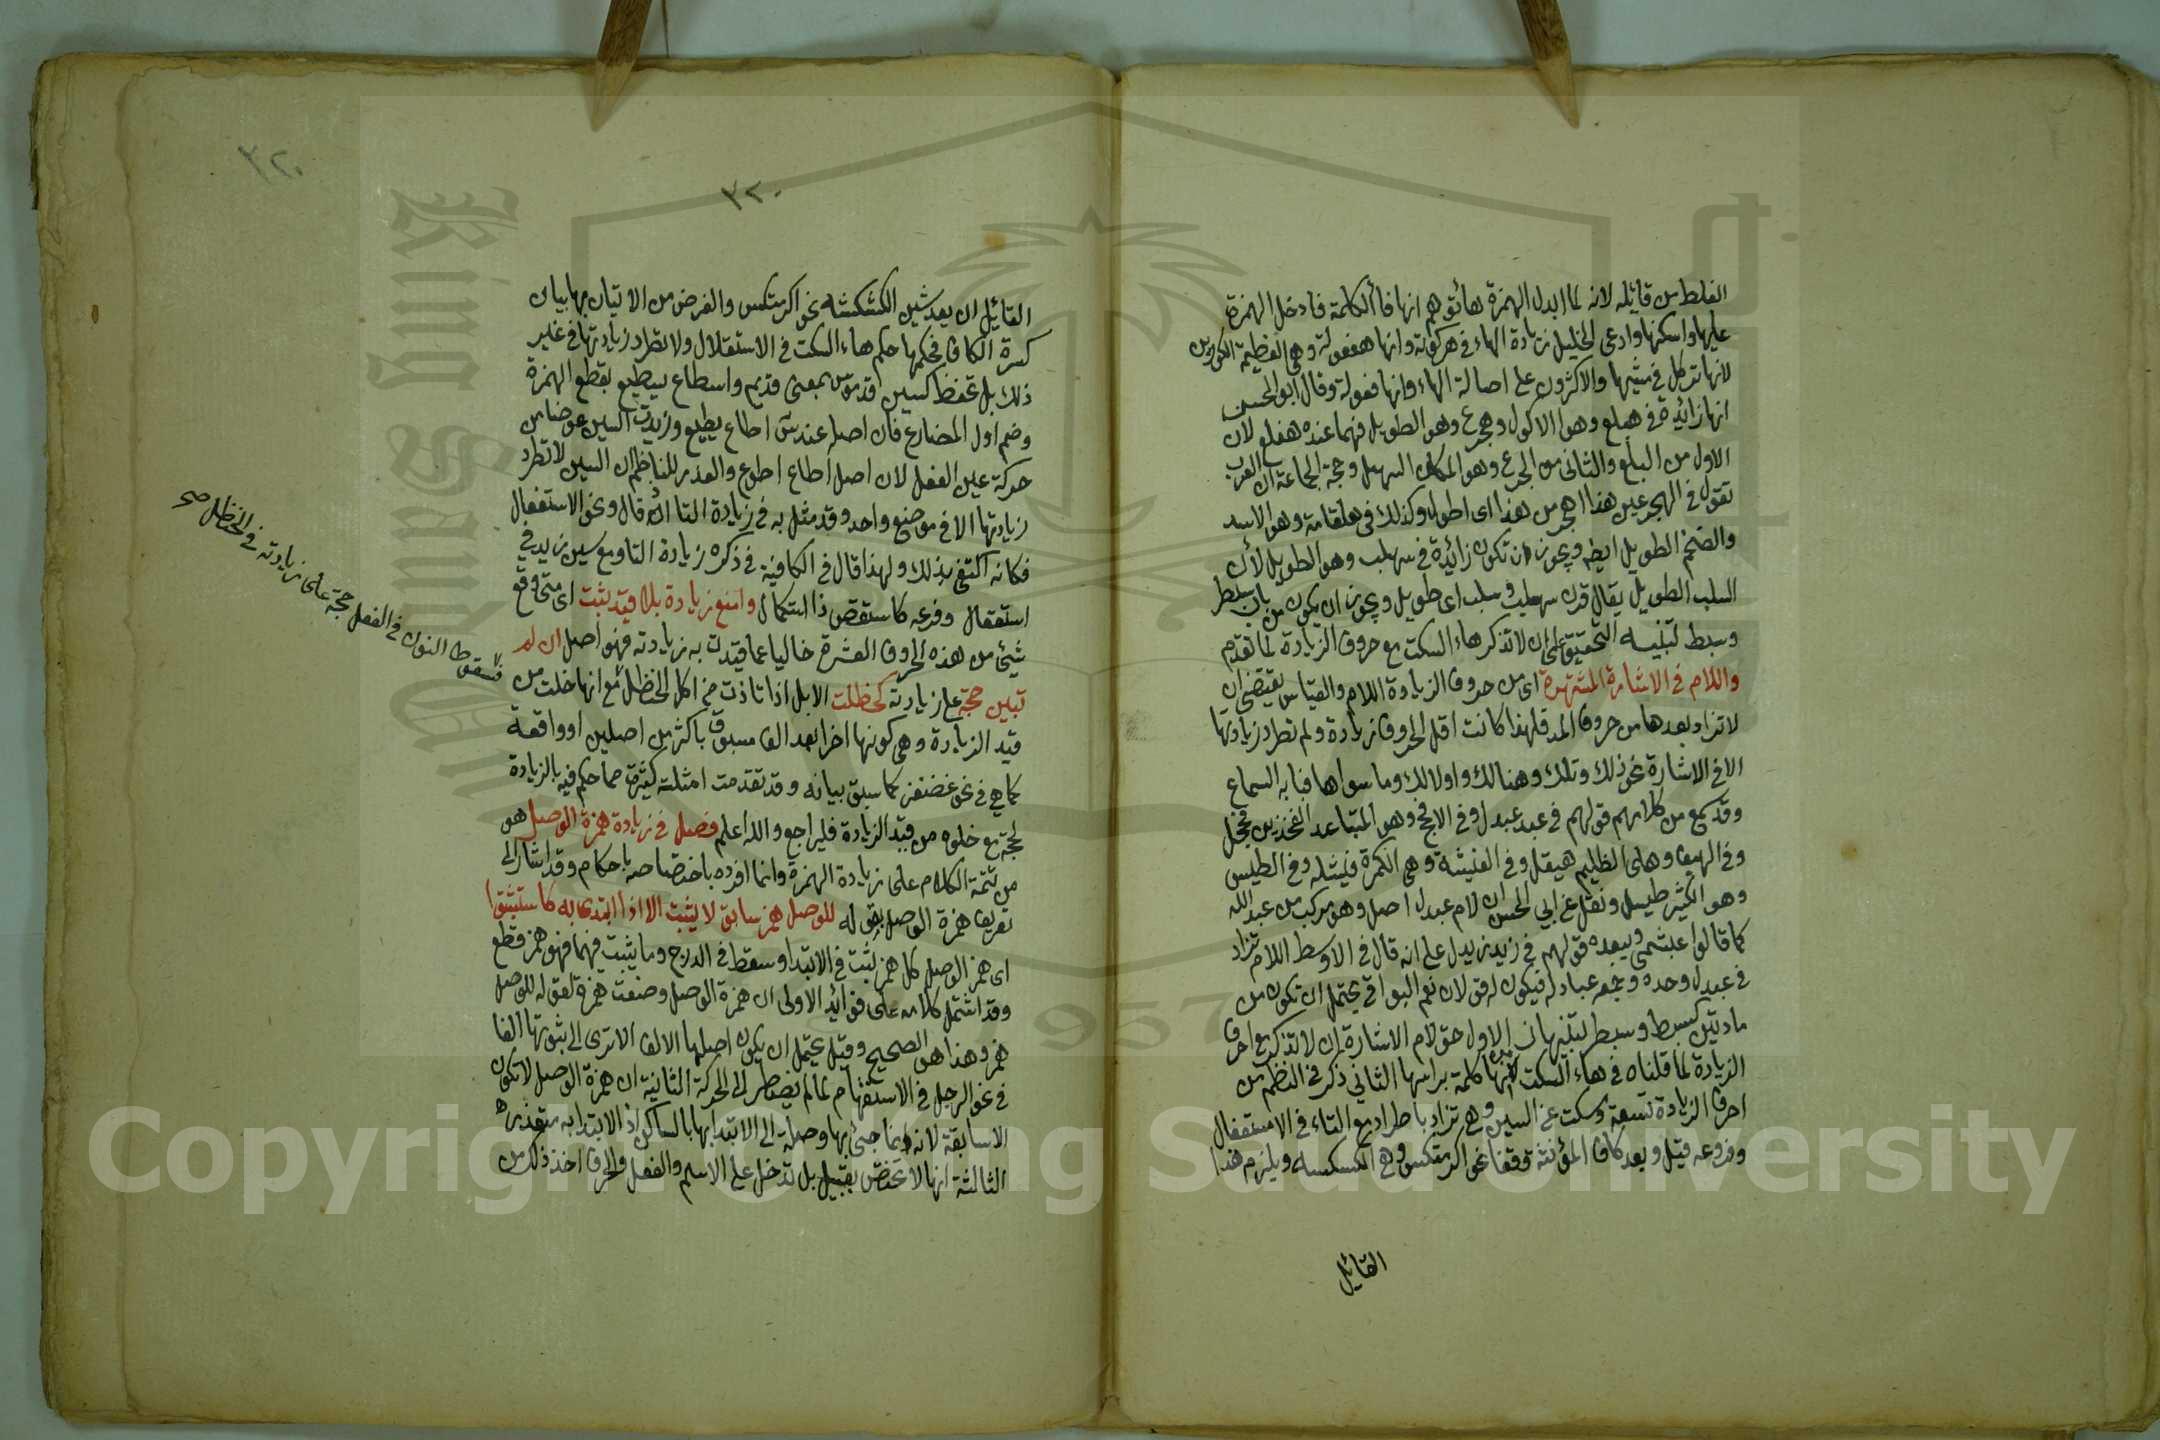 الغلط من قائله لانه لما ابدل الهمزة هاء توهم انها فاء الكلمة فادخل الهمزة
عليها واسكنها وادعى الخليل زيادة الهاء في هركولة وانها هفعولة وهي العظيمة الوركين
لانها تركل في مشيها والاكثرون على اصالة الهاء وانها فعولة وقال ابو الحسن
انها زائدة في هبلع وهو الاكول وهجرع وهو الطويل فهما عنده هفلع لان
الاول من البلع والثاني من الجرع وهو المكان السهل وحجة الجماعة ان العرب
تقول في الهجرعين هذا اهجر من هذا اى اطول وكذلك في هلقامة وهو الاسد
والضخم الطويل ايضا ويجوز ان تكون زائدة في سهلب وهو الطويل لان
السلب الطويل يقال قرن سهلب وسلب اى طويل ويجوز ان يكون من باب سبطر
وسبط تنبيه التحقيق ان لا تذكر هاء السكت مع حروف الزيادة لما تقدم
واللام في الاشارة المشتهرة اى من حروف الزيادة اللام والقياس يقتضى ان
لا تزاد بعدها من حروف المد فلهذا كانت اقل الحروف زيادة ولم تطرد زيادتها
الا في الاشارة نحو ذلك وتلك وهنالك واولالك وما سواها فبابه السماع
وقد سمع من كلامهم قولهم في عبد عبدل وفي الافحج وهو المتباعد الفخذين فحجل
وفي الهيق وهو الظليم هيقل وفي الفيشة وهي الكمرة فيشلة وفي الطيس
وهو الكثير طيسل ونقل عن ابي الحسن ان لام عبدل اصل وهو مركب من عبد الله
كما قالوا عبشمى ويبعده قولهم في زيد زيدل على انه قال في الاوسط اللام تزاد
في عبدل وحده وجمعه عبادلة فيكون له قولان نعم البواقي يحتمل ان تكون من
مادتين كسبط وسبطر تنبيهان الاول حق لام الاشارة ان لا تذكر مع احرف
الزيادة لما قلناه في هاء السكت انها كلمة براسها الثاني ذكر في النظم من
احرف الزيادة تسعة وسكت عن السين وهي تزاد باطراد مع التاء في الاستفعال
وفروعه قيل وبعد كاف المؤنثة وقفا نحو اكرمتكس وهي الكسكسة ويلزم هذا
القائل
٣٢٠
٣٢٠
القائل ان يعد شين الكشكشة نحو اكرمتكش والغرض من الاتيان بها بيان
كسرة الكاف فحكمها حكم هاء السكت في الاستقلال ولا تطرد زيادتها في غير
ذلك بل تحفظ كسين قدموس بمعنى قديم واسطاع يسطيع بقطع الهمزة
وضم اول المضارع فان اصله عند س اطاع يطيع وزيدت السين عوضا من
حركة عين الفعل لان اصل اطاع اطوع والعذر للناظم ان السين لا تطرد
زيادتها الا في موضع واحد وقد مثل به في زيادة التاء اذ قال ونحو الاستفعال
فكانه اكتفى بذلك ولهذا قال في الكافية في ذكره زيادة التا ومع سين زيد في
استفعال وفرعه كاستقص ذا استكمال وامنع زيادة بلا قيد ثبت اى متى وقع
شئ من هذه الحروف العشرة خاليا عما قيدت به زيادته فهو اصل ان لم
تبين حجة على زيادته كحظلت الابل اذا تاذت من اكل الحنظل مع انها خلت من
قيد الزيادة وهي كونها اخرا بعد الف مسبوق باكثر من اصلين او واقعة
كما هي في نحو غضنفر كما سبق بيانه وقد تقدمت امثلة كثيرة مما حكم فيه بالزيادة
لحجة مع خلوه من قيد الزيادة فليراجع والله اعلم فصل في زيادة همزة الوصل هو
من تتمة الكلام على زيادة الهمزة وانما افرده باختصاصه باحكام وقد اشار الى
تعريف همزة الوصل بقوله للوصل همز سابق لا يثبت الا اذا ابتدى به كاستثبتوا
اى همز الوصل كل همز ثبت في الابتدا وسقط في الدرج وما يثبت فيهما فهو همز قطع
وقد اشتمل كلامه على فوائد الاولى ان همزة الوصل وضعت همزة لقوله للوصل
همز وهذا هو الصحيح وقيل يحتمل ان يكون اصلها الالف الا ترى الى ثبوتها الفا
في نحو الرجل في الاستفهام لما لم يضطر الى الحركة الثانية ان همزة الوصل لا تكون
الا سابقة لانه انما جئ بها وصلة الى الابتدا بالساكن اذ الابتدا به متعذر
الثالثة انها لا تختص بقبيل بل تدخل على الاسم والفعل والحرف اخذ ذلك من
فسقوط النون في الفعل حجة على زيادته في الحنظل صح